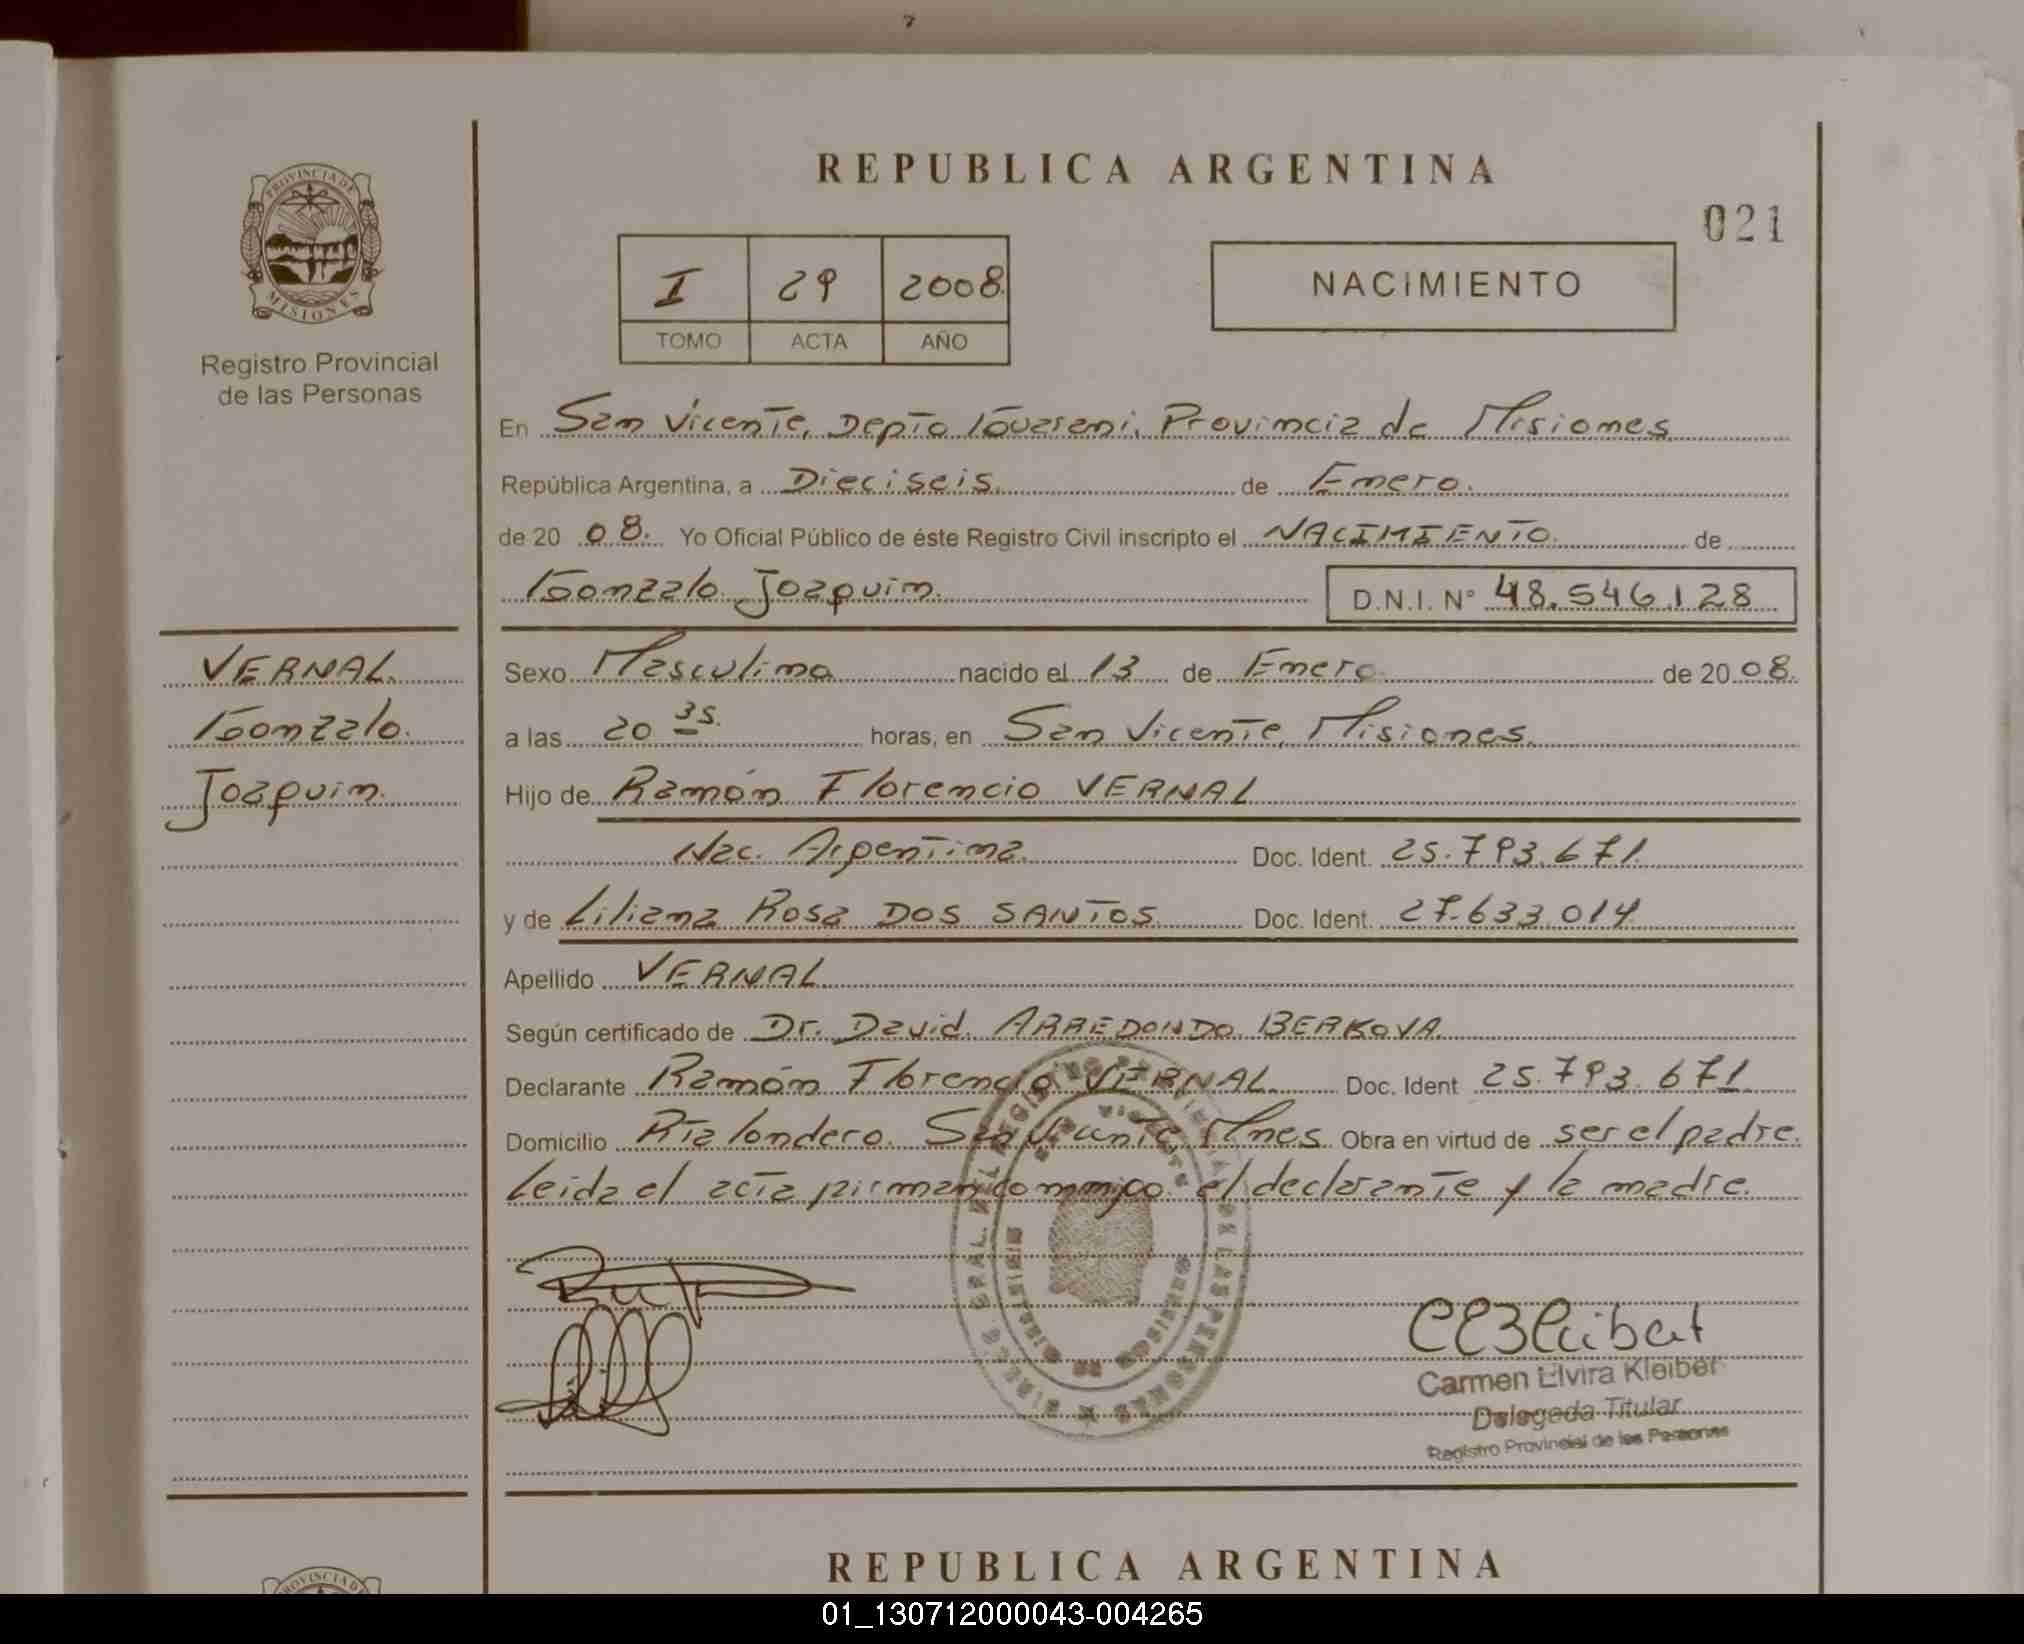 REPUBLICA ARGENTINA
021
PROVINCIA DE
MISIONES
Registro Provincial
de las Personas
I 29 2008
TOMO ACTA AÑO
NACIMIENTO
En San Vicente, Depto Guarani, Provincia de Misiones
República Argentina, a Dieciseis. de Enero.
de 20 08. Yo Oficial Público de éste Registro Civil inscripto el NACIMIENTO. de
Gonzalo Joaquin. D.N.I. N° 48.546.128
VERNAL
Gonzalo.
Joaquin.
Sexo Masculino nacido el 13 de Enero de 20 08.
a las 20 35. horas, en San Vicente, Misiones.
Hijo de Ramón Florencio VERNAL
Nac. Argentina. Doc. Ident. 25.793.671.
y de Liliana Rosa DOS SANTOS. Doc. Ident. 27.633.014
Apellido VERNAL
Según certificado de Dr. David ARREDONDO BERKOVA.
Declarante Ramón Florencio VERNAL Doc. Ident 25.793.671
Domicilio Pta londero. San Vicente Mnes. Obra en virtud de ser el padre.
Leida el acta firman conmigo el declarante y la madre.
Carmen Elvira Kleiber
Delegada Titular
Registro Provincial de las Personas
REPUBLICA ARGENTINA
PROVINCIA DE
01_130712000043-004265